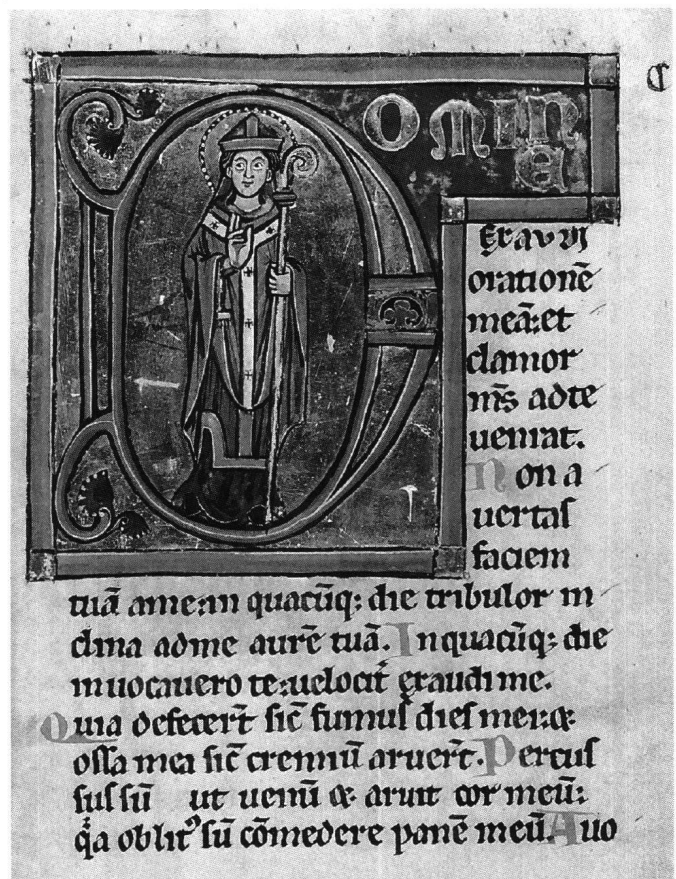 D OMIN
E
Exaudi
orationē
meā: et
clamor
m̄s ad te
ueniat.
Non a
uertas
faciem
tuā a me: in quacūq; die tribulor in
clina ad me aurē tuā. In quacūq; die
inuocauero te: uelocit̄ exaudi me.
Quia defecer̄t sic̄ fumus dies mei: &
ossa mea sic̄ cremiū aruer̄t. Percus
sus sū ut uenū & aruit cor meū:
q̇a oblit᾽ sū cōmedere panē meū. A uo